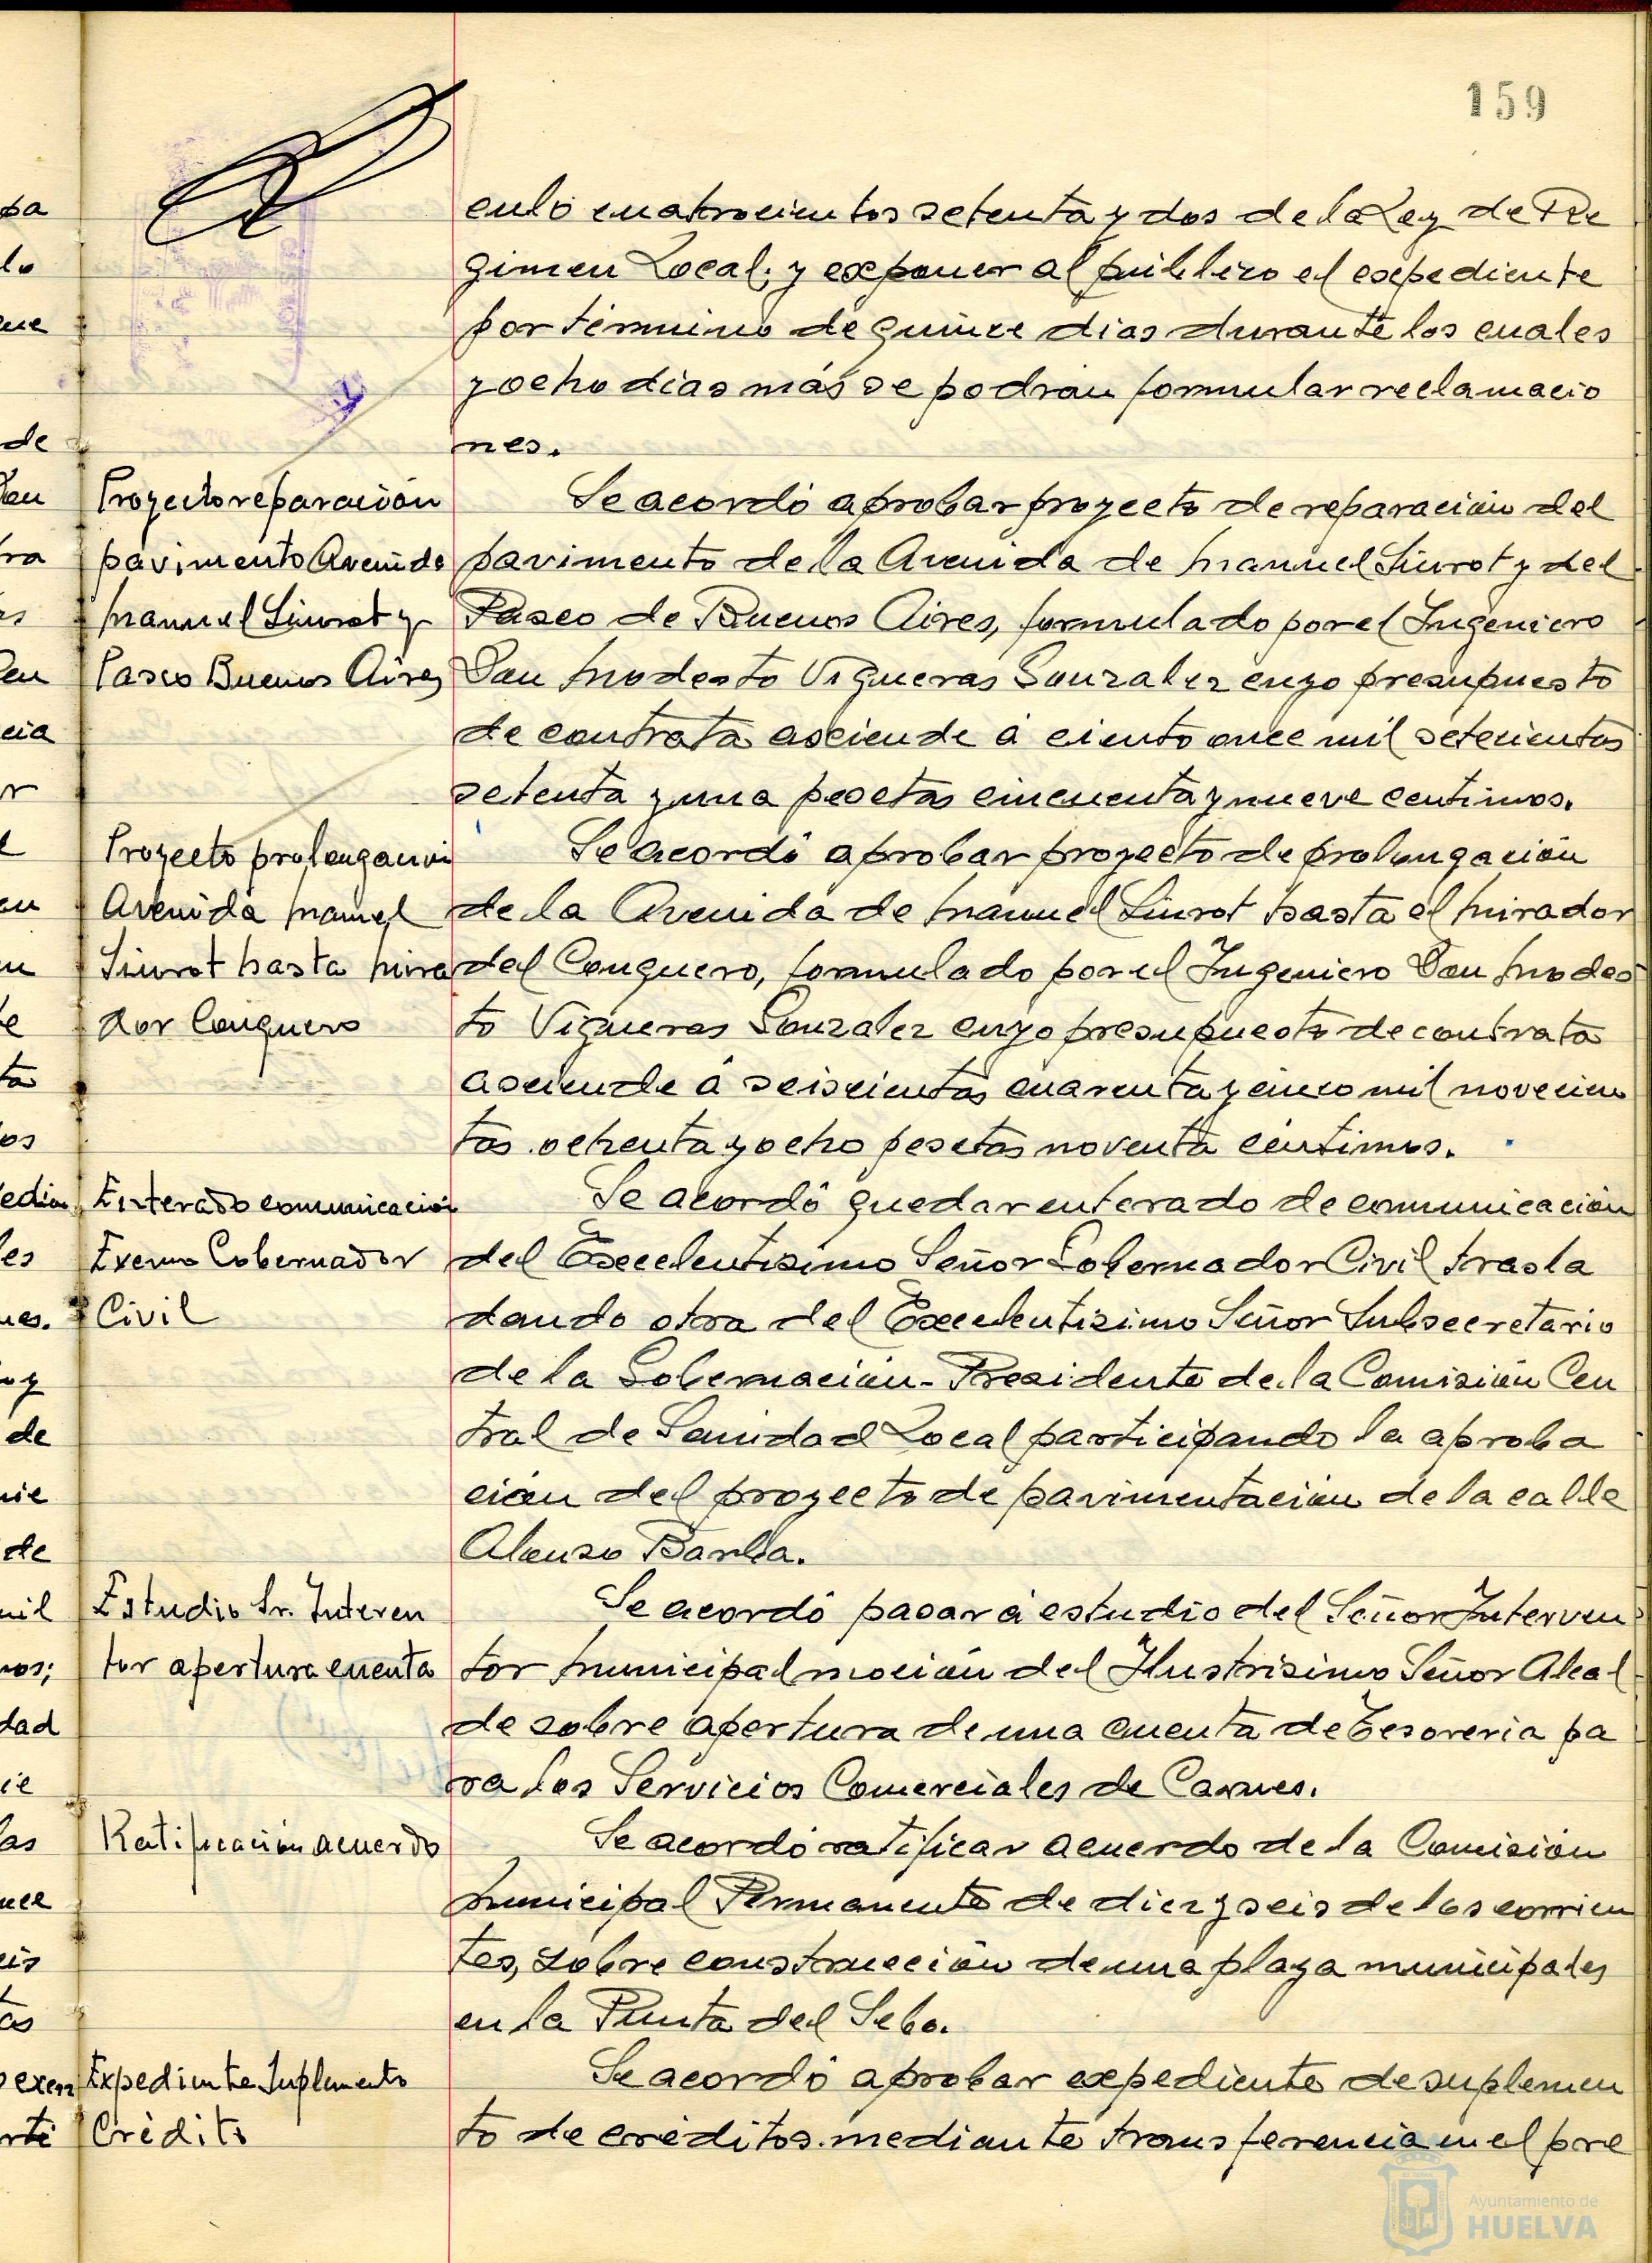 159
culo cuatrocientos setenta y dos de la Ley de Re
gimen Local; y exponer al público el expediente
por término de quince dias durante los cuales
y ocho dias más se podrán formular reclamacio
nes.
Proyecto reparación
pavimento Avenida
Manuel Siurot y
Paseo Buenos Aires
Se acordó aprobar proyecto de reparación del
pavimento de la Avenida de Manuel Siurot y del
Paseo de Buenos Aires, formulado por el Ingeniero
Don Modesto Vigueras Gonzalez cuyo presupuesto
de contrata asciende á ciento once mil setecientas
setenta y una pesetas cincuenta y nueve centimos.
Proyecto prolongación
Avenida Manuel
Siurot hasta Mira
dor Conquero
Se acordó aprobar proyecto de prolongación
de la Avenida de Manuel Siurot hasta el Mirador
del Conquero, formulado por el Ingeniero Don Modes
to Vigueras Gonzalez cuyo presupuesto de contrata
asciende á seiscientas cuarenta y cinco mil novecien
tas ochenta y ocho pesetas noventa céntimos.
Enterado comunicación
Excmo Gobernador
Civil
Se acordó quedar enterado de comunicación
del Excelentisimo Señor Gobernador Civil trasla
dando otra del Excelentisimo Señor Subsecretario
de la Gobernación - Presidente de la Comisión Cen
tral de Sanidad Local participando la aproba
ción del proyecto de pavimentación de la calle
Alonso Barba.
Estudio Sr. Interven
tor apertura cuenta
Se acordó pasar á estudio del Señor Interven
tor Municipal moción del Ilustrisimo Señor Alcal
de sobre apertura de una cuenta de Tesoreria pa
ra los Servicios Comerciales de Carnes.
Ratificación acuerdo
Se acordó ratificar acuerdo de la Comisión
Municipal Permanente de diez y seis de los corrien
tes, sobre construcción de una playa municipales
en la Punta del Sebo.
Expediente Suplemento
Crédito
Se acordó aprobar expediente de suplemen
to de créditos mediante transferencia en el pre
Ayuntamiento de
HUELVA